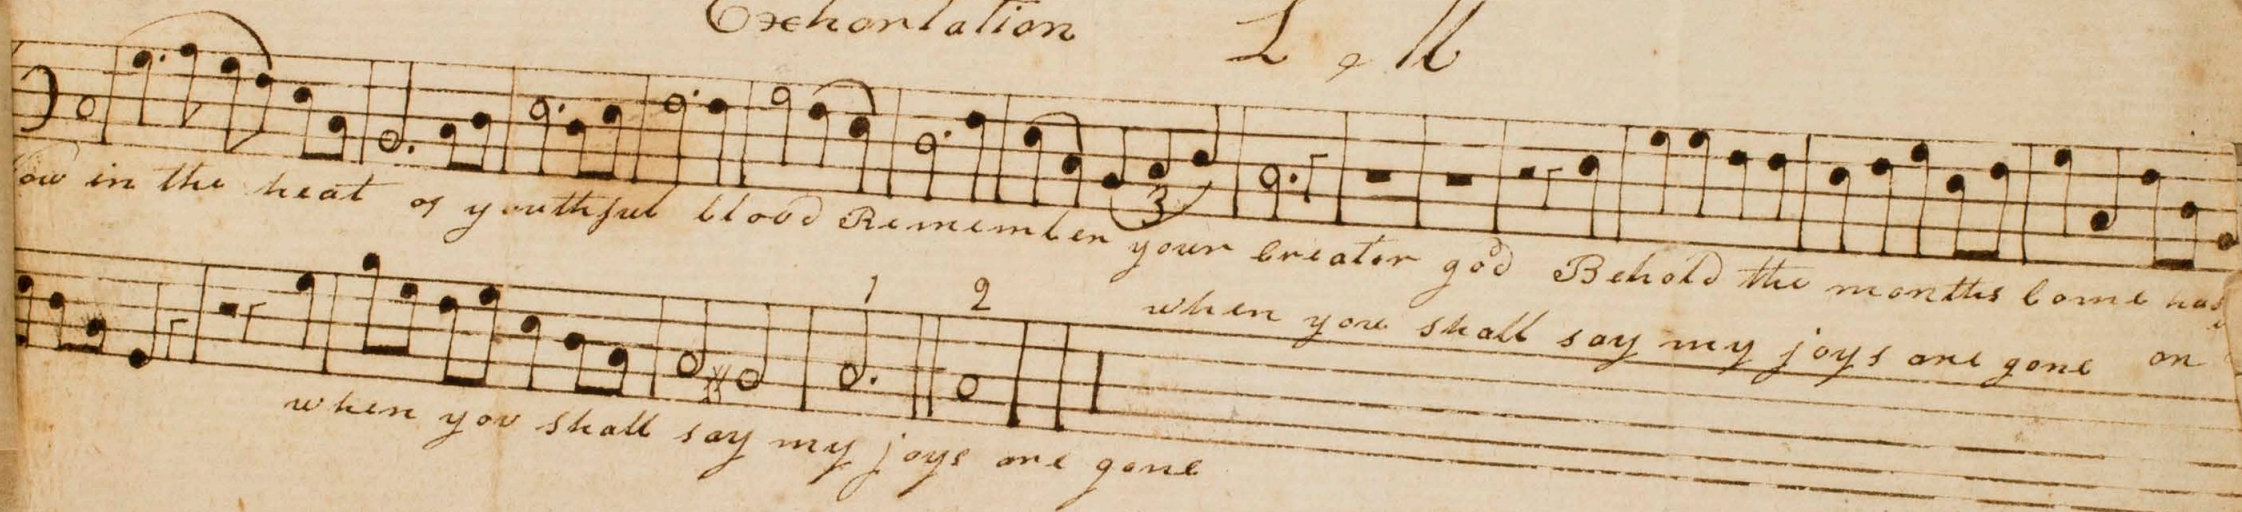 Exhortation L, M
in the heat of youthful blood Remember your creator god Behold the months come
3
1 2
when you shall say my joys are gone on
when you shall say my joys are gone